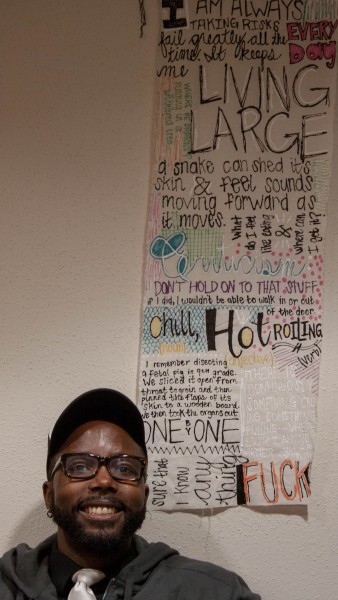 I AM ALWAYS
TAKING RISKS
fail greatly all the
time. It keeps
EVERY
DAY
me
LIVING
LARGE
a snake can shed it's
skin & feel sounds
moving forward as
it moves.
What
do I feel
like eating
&
where can
I get it?
Criticism
DON'T HOLD ON TO THAT STUFF
if I did, I wouldn't be able to walk in or out
of the door
Chill, Hot ROILING
(noun)
(adjective)
A
(verb)
I remember disecting
a fetal pig in 9th grade.
We sliced it open from
throat to groin and then
pinned the flaps of its
skin to a wooden board.
We then took the organs out
ONE BY ONE
sure that
I know
any
thing
FUCK